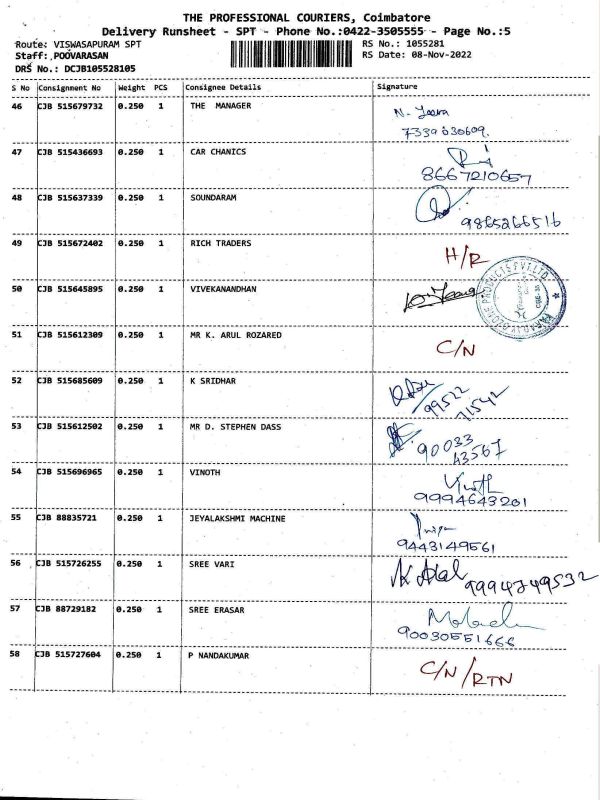 THE PROFESSIONAL COURIERS, Coimbatore
Delivery Runsheet - SPT - Phone No.:0422-3505555 - Page No.:5
Route: VISWASAPURAM SPT RS No.: 1055281
Staff: POOVARASAN RS Date: 08-Nov-2022
DRS No.: DCJB105528105
S No Consignment No Weight PCS Consignee Details Signature
46 CJB 515679732 0.250 1 THE MANAGER
7339630609.
47 CJB 515436693 0.250 1 CAR CHANICS
8667210657
48 CJB 515637339 0.250 1 SOUNDARAM
9865266516
49 CJB 515672402 0.250 1 RICH TRADERS H/R
50 CJB 515645895 0.250 1 VIVEKANANDHAN
51 CJB 515612309 0.250 1 MR K. ARUL ROZARED C/N
52 CJB 515685609 0.250 1 K SRIDHAR
99522
71542
53 CJB 515612502 0.250 1 MR D. STEPHEN DASS
90033
43567
54 CJB 515696965 0.250 1 VINOTH Vinoth
9994643201
55 CJB 88835721 0.250 1 JEYALAKSHMI MACHINE
9443149561
56 CJB 515726255 0.250 1 SREE VARI
9994749532
57 CJB 88729182 0.250 1 SREE ERASAR
90030551666
58 CJB 515727604 0.250 1 P NANDAKUMAR C/N/RTN